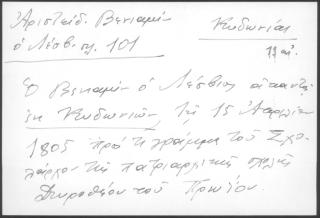 Ἀριστείδ. Βενιαμίν
ὁ Λέσβιος 101
Κυδωνίαι
Ὁ Βενιαμίν ὁ Λέσβιος ἀπαντᾷ
ἐκ Κυδωνιῶν, τῇ 15 Ἀπριλίου
1805 πρὸς τὸ γράμμα τοῦ Σχο-
λάρχου τῆς πατριαρχικῆς σχολῆς
Δωροθέου τοῦ Πρωΐου.